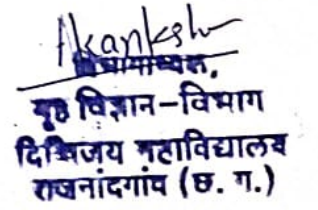 Akanksha
विभागाध्यक्ष,
गृह विज्ञान-विभाग
दिग्विजय महाविद्यालय
राजनांदगांव (छ. ग.)